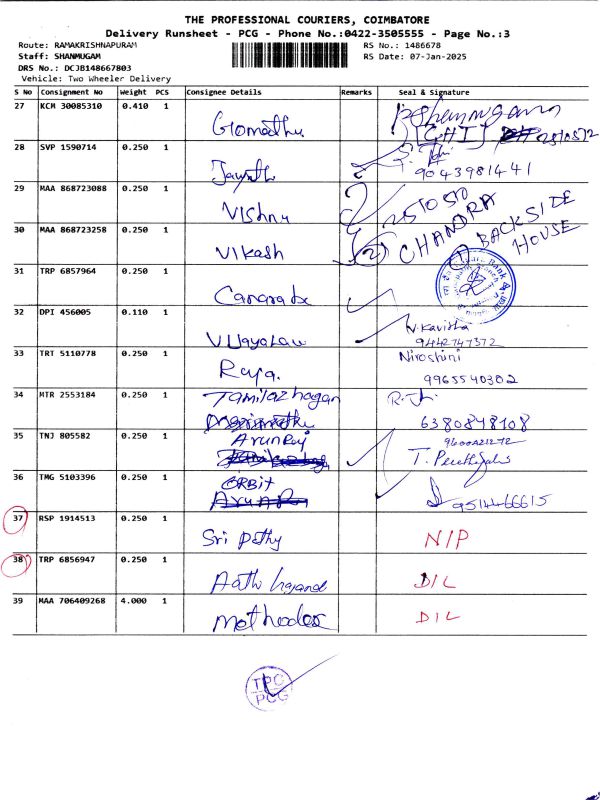 THE PROFESSIONAL COURIERS, COIMBATORE
Delivery Runsheet - PCG - Phone No.:0422-3505555 - Page No.:3
Route: RAMAKRISHNAPURAM RS No.: 1486678
Staff: SHANMUGAM RS Date: 07-Jan-2025
DRS No.: DCJB148667803
Vehicle: Two Wheeler Delivery
S No Consignment No Weight PCS Consignee Details Remarks Seal & Signature
27 KCM 30085310 0.410 1 Gomathy
28 SVP 1590714 0.250 1 Jayanth 9043981441
29 MAA 868723088 0.250 1 Vishnu
30 MAA 868723258 0.250 1 Vikash (2) CHANDRA (1) BACK SIDE
HOUSE
31 TRP 6857964 0.250 1 Canara
32 DPI 456005 0.110 1 Vijayalaw V. Kavitha
9442747372
33 TRT 5110778 0.250 1 Raja. Niroshini
9965540302
34 MTR 2553184 0.250 1 Tamilazhagan
6380848108
35 TNJ 805582 0.250 1 Arunraj 9600221272
36 TMG 5103396 0.250 1 ORBIT 9514466615
37 RSP 1914513 0.250 1 Sri pathy N/P
38 TRP 6856947 0.250 1 D/L
39 MAA 706409268 4.000 1 methodex D/L
TPC
PCG